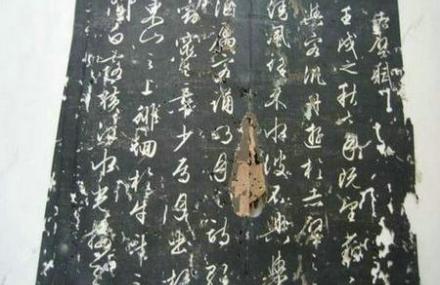 赤壁賦
壬戌之秋七月既望蘇
與客泛舟遊於赤壁之
清風徐来水波不興舉
酒屬客誦明月之詩
窈窕之章少焉月出於
東山之上徘徊於斗牛之
間白露横江水光接